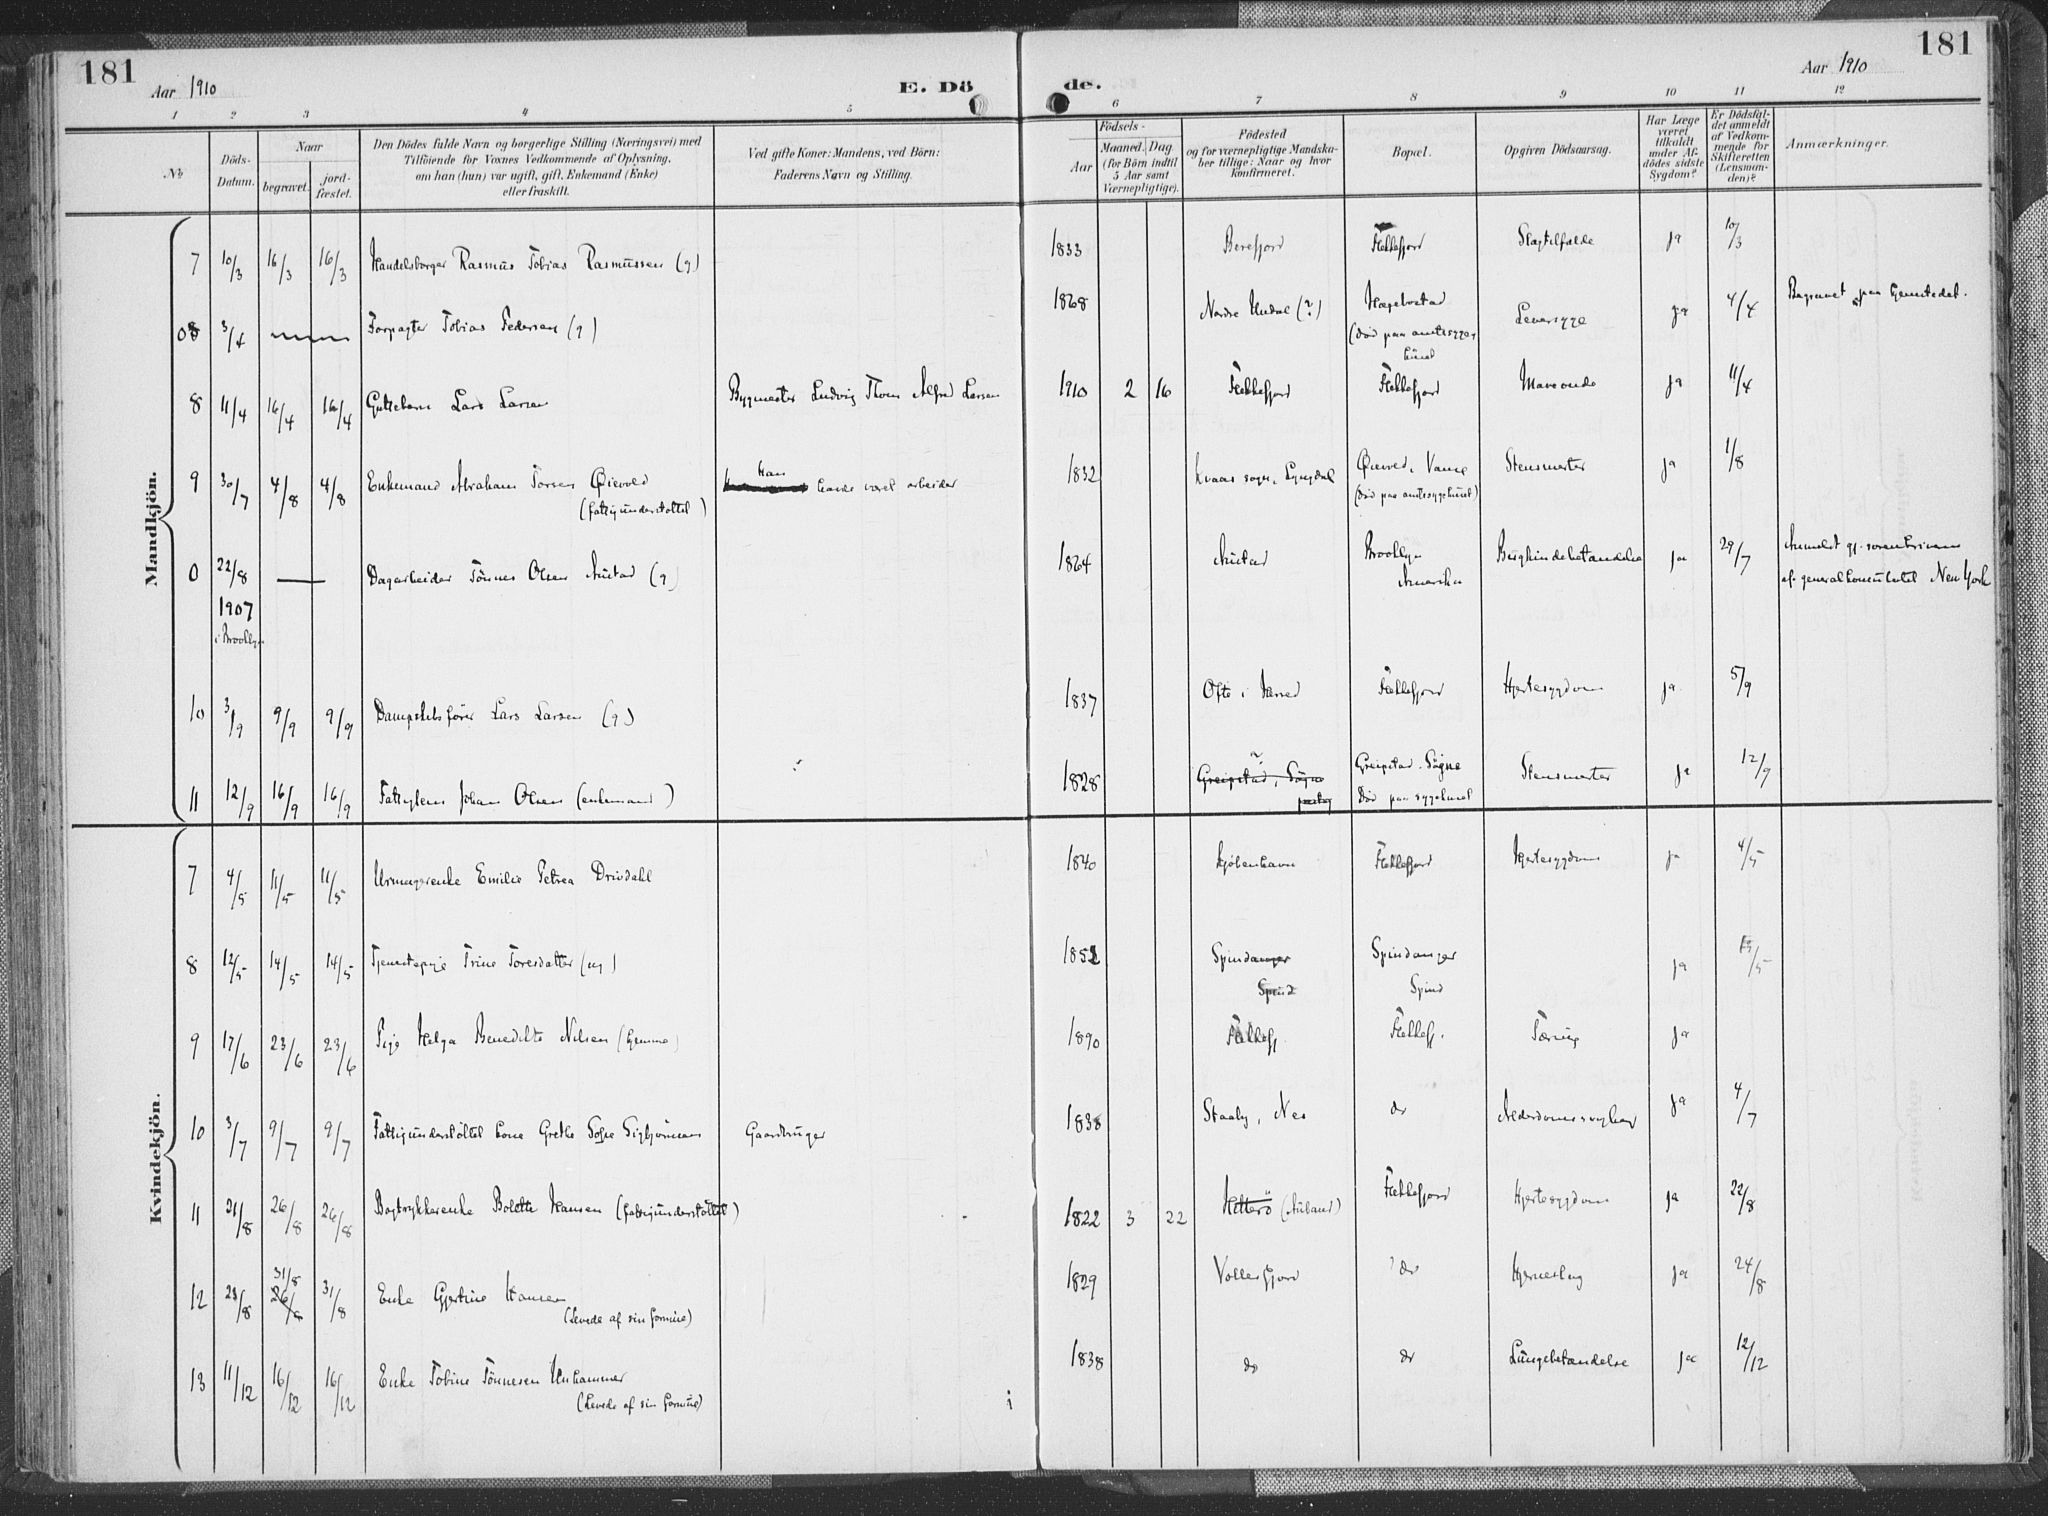 181
Aar 1910
E. Dö
de.
Aar 1910
181
1 2 3 4 5 6 7 8 9 10 11 12
No
Döds-
Datum.
Naar
begravet.
jord-
fæstet.
Den Dödes fulde Navn og borgerlige Stilling (Næringsvei) med
Tilföiende for Voxnes Vedkommende af Oplysning,
om han (hun) var ugift, gift, Enkemand (Enke)
eller fraskilt.
Ved gifte Koner: Mandens, ved Börn:
Faderens Navn og Stilling.
Födsels-
Aar
Maaned. Dag.
(for Börn indtil
5 Aar samt
Værnepligtige).
Födested
og for værnepligtige Mandska-
ber tillige: Naar og hvor
konfirmeret.
Bopæl.
Opgiven Dödsaarsag.
Har Læge
været
tilkaldt
under Af-
dödes sidste
Sygdom?
Er Dödsfal-
det anmeldt
af Vedkom-
mende for
Skifteretten
(Lensman-
den)?
Anmærkninger.
Mandkjön.
7 10/3 16/3 16/3 Handelsborger Rasmus Tobias Rasmussen (g) 1833 Flekkefjord Slagtilfælde ja 10/3
3/4 Forpagter Tobias Pedersen (g) 1868 Nordre Undal (?) Hægebostad Leversyge ja 4/4 Begravet paa hjemstedet.
(død paa amtssyge-
huset
8 11/4 16/4 16/4 Guttebarn Lars Larsen Bygmester Ludvig Thom Alfred Larsen 1910 2 16 Flekkefjord Flekkefjord Maveonde ja 11/4
9 30/7 4/8 4/8 Enkemand Abraham Torsen Øievold Han havde været arbeider 1832 Kvaas sogn, Lyngdal Øievold, Vanse Stensmerter ja 1/8
(fattigunderstøttet) (død paa amtssygehuset)
0 22/8 Dagarbeider Tönnes Olsen Austad (g) 1864 Austad Brooklyn Berghindebetændelse ja 29/7 Anmeldt gj. sorenskriveren
1907 Amerika af generalkonsulatet New York
i Brooklyn
10 3/9 9/9 9/9 Dampskibsfører Lars Larsen (g) 1837 Flekkefjord Hjertesygdom ja 5/9
11 12/9 16/9 16/9 Johan Olsen (enkemand) 1828 Greipstad, Søgne Greipstad, Søgne Stensmerter ja 12/9
Død paa sygehuset
Kvindekjön.
7 4/5 11/5 11/5 Urmagerenke Emilie Petrea Drivdahl 1840 Kjøbenhavn Flekkefjord Hjertesygdom ja 4/5
8 12/5 14/5 14/5 Tjenestepige Trine Toresdatter (ug) 1852 Spindanger Spindanger ja
Spind Spind
9 17/6 23/6 23/6 Pige Helga Benedikte Nilsen (hjemme) 1890 Flekkefj. Flekkefj. Tæring ja
10 3/7 9/7 9/7 Fattigunderstøttet kone Grethe Sofie Gaardbruger 1838 Nes do Alderdomssvaghed ja 4/7
11 21/8 26/8 26/8 Bogtrykkerenke Bolette Hansen (fattigunderstøttet) 1822 3 22 Hitterø (Auland) Flekkefjord Hjertesygdom ja 22/8
12 23/8 31/8 26/8 31/8 Enke Gjertine Hansen 1829 Vollesfjord do Hjerneslag ja 24/8
(Levede af sin formue)
13 11/12 16/12 16/12 Enke Tobine Tönnesen Unhammer 1838 do do Lungebetændelse ja 12/12
(Levede af sin formue)